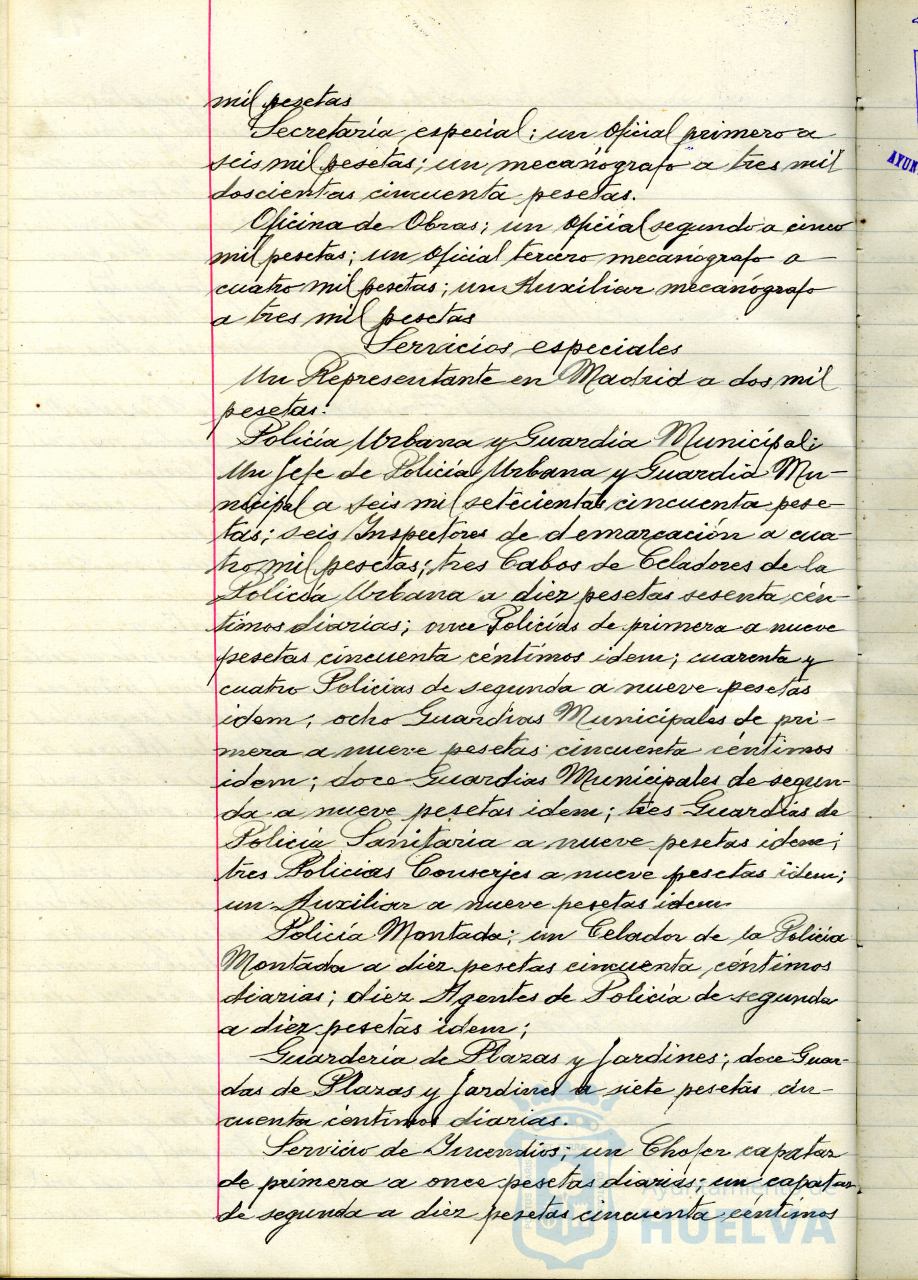 mil pesetas
Secretaría especial; un Oficial primero a
seis mil pesetas; un mecanógrafo a tres mil
doscientas cincuenta pesetas.
Oficina de Obras; un Oficial segundo a cinco
mil pesetas; un Oficial tercero mecanógrafo a
cuatro mil pesetas; un Auxiliar mecanógrafo
a tres mil pesetas
Servicios especiales
Un Representante en Madrid a dos mil
pesetas.
Policía Urbana y Guardia Municipal:
Un Jefe de Policía Urbana y Guardia Mu-
nicipal a seis mil setecientas cincuenta pese-
tas; seis Inspectores de demarcación a cua-
tro mil pesetas; tres Cabos de Celadores de la
Policía Urbana a diez pesetas sesenta cén-
timos diarias; once Policías de primera a nueve
pesetas cincuenta céntimos idem; cuarenta y
cuatro Policias de segunda a nueve pesetas
idem; ocho Guardias Municipales de pri-
mera a nueve pesetas cincuenta céntimos
idem; doce Guardias Municipales de segun-
da a nueve pesetas idem; tres Guardias de
Policía Sanitaria a nueve pesetas idem;
tres Policias Conserjes a nueve pesetas idem;
un Auxiliar a nueve pesetas idem
Policía Montada; un Celador de la Policía
Montada a diez pesetas cincuenta céntimos
diarias; diez Agentes de Policía de segunda
a diez pesetas idem;
Guardería de Plazas y Jardines; doce Guar-
das de Plazas y Jardines a siete pesetas cin-
cuenta céntimos diarias.
Servicio de Incendios; un Chofer capataz
de primera a once pesetas diarias; un capataz
de segunda a diez pesetas cincuenta céntimos
Ayuntamiento de
HUELVA
AYUN